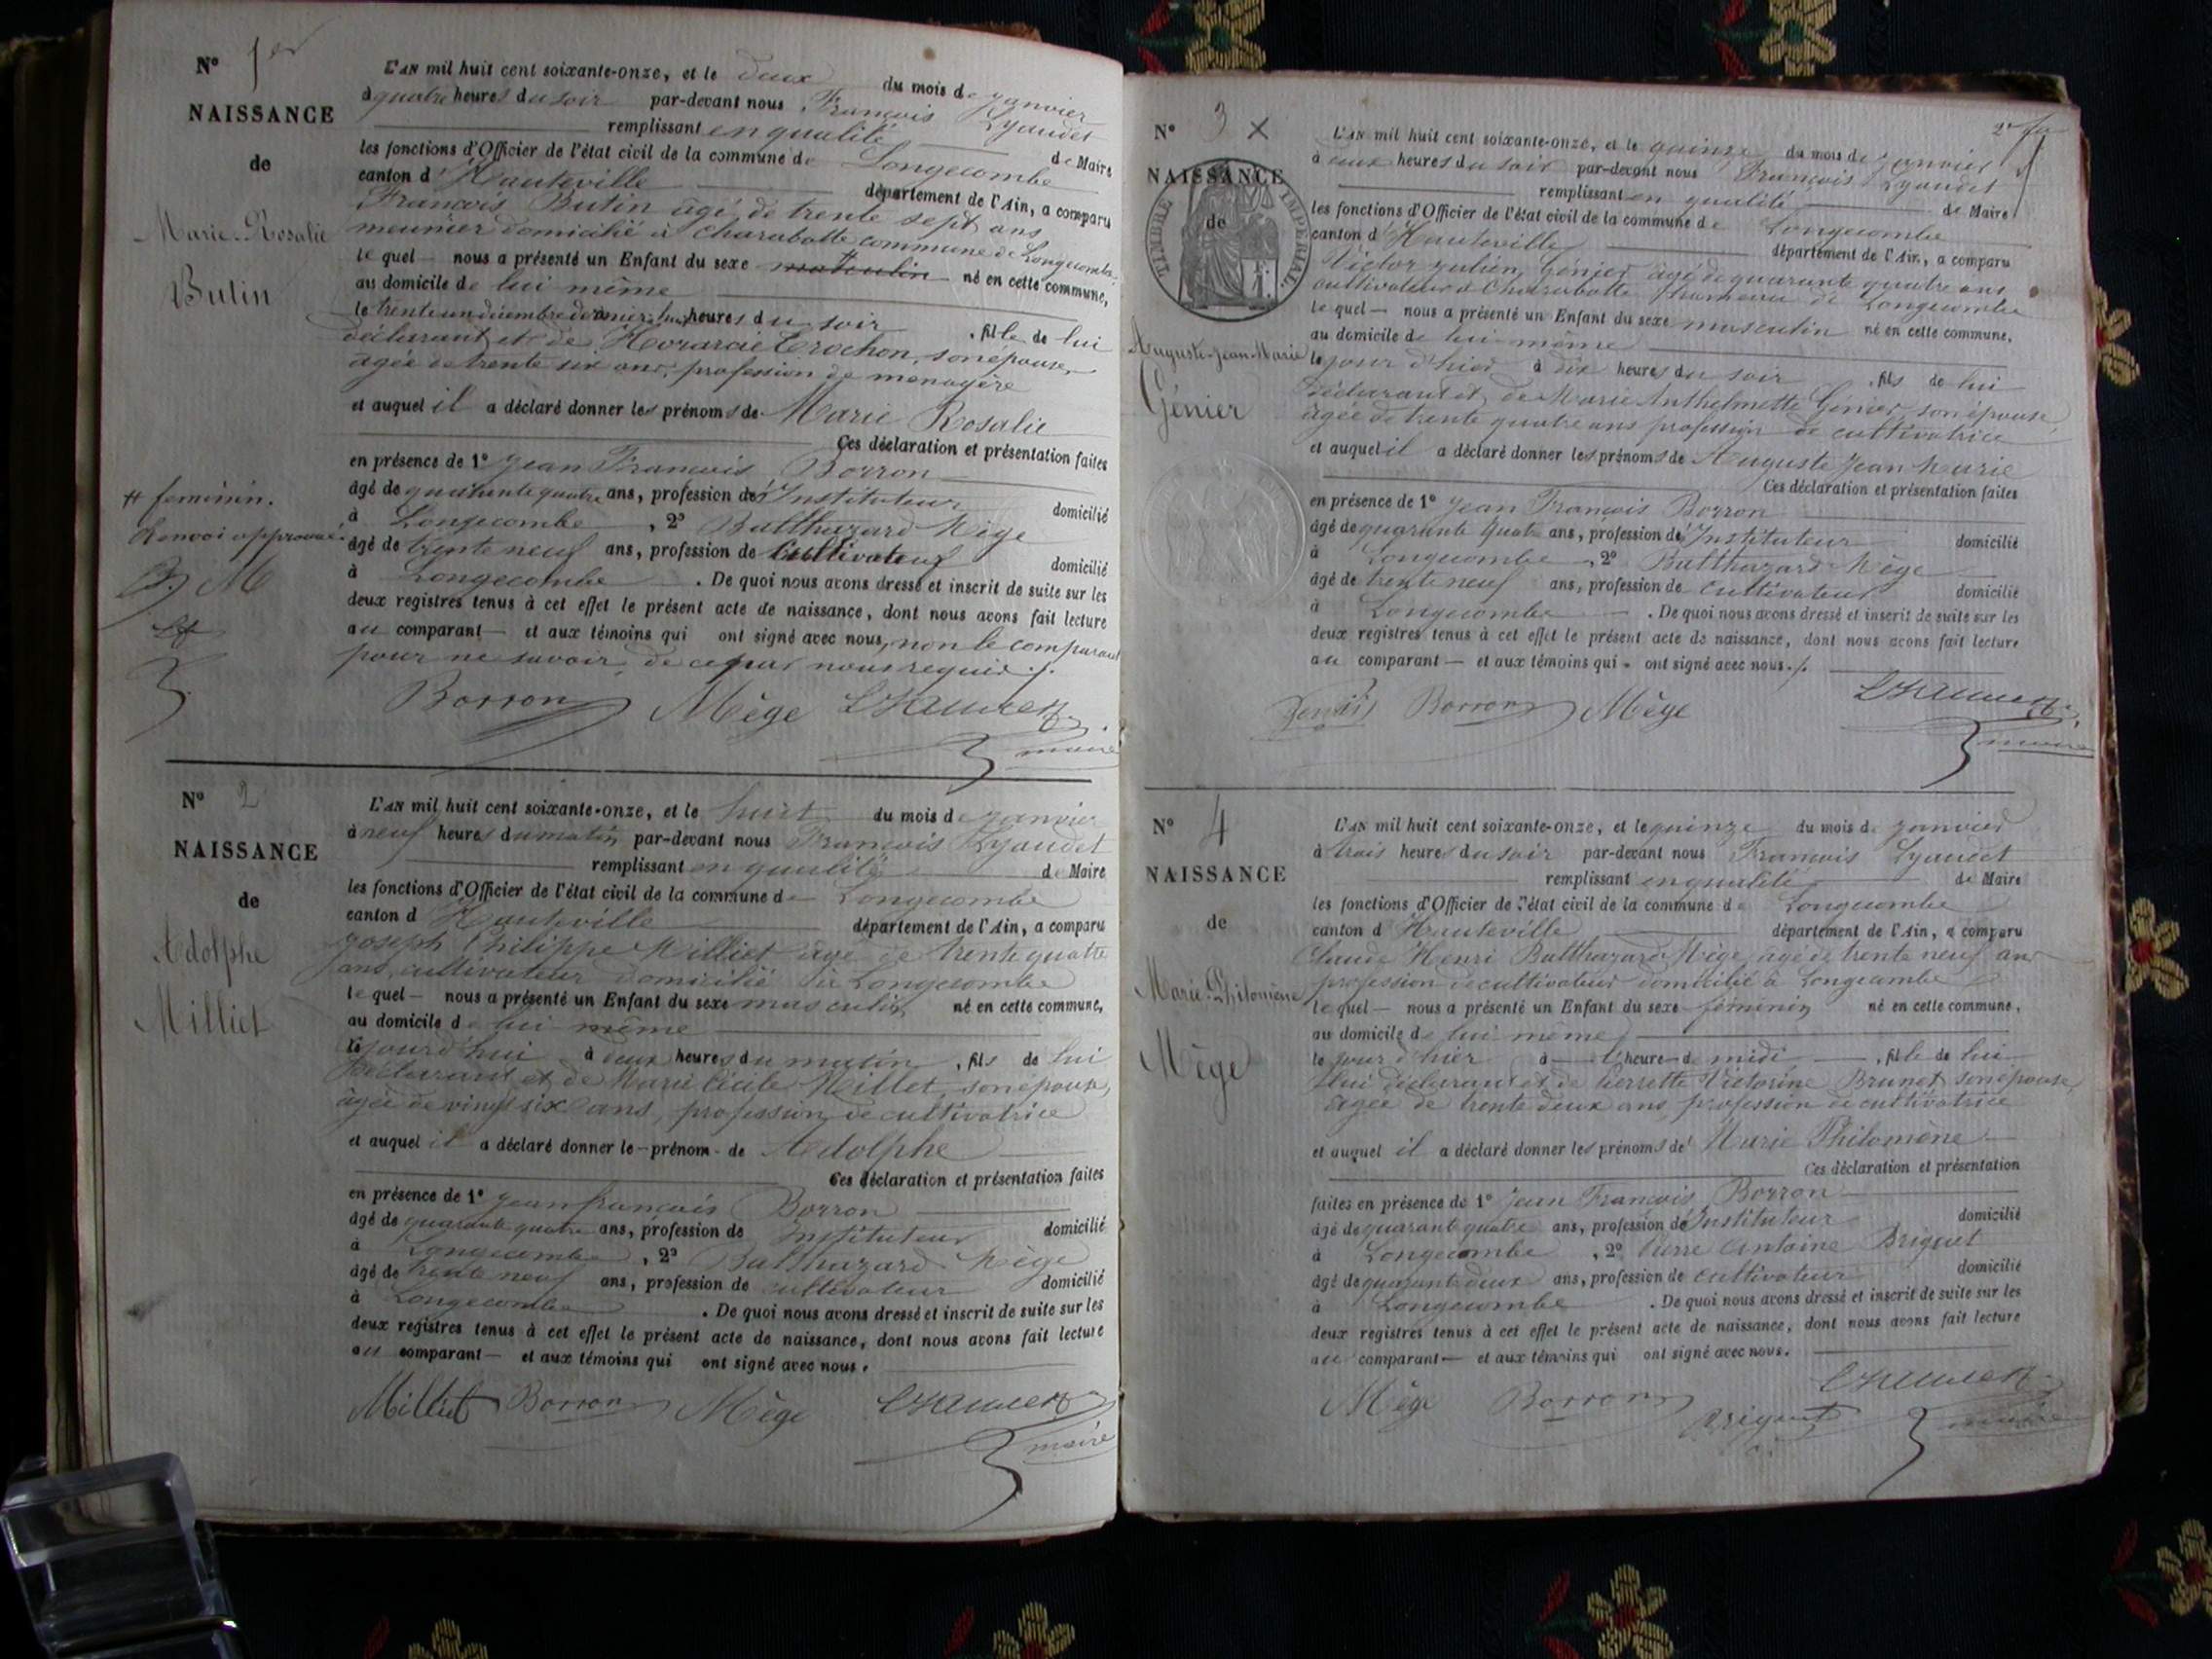 N° 1er
NAISSANCE
de
Marie-Rosalie
Butin
L'AN mil huit cent soixante-onze, et le deux du mois de janvier
à quatre heures du soir par-devant nous François Lyaudet
remplissant en qualité de Maire
les fonctions d'Officier de l'état civil de la commune de Longecombe
canton d'Hauteville département de l'Ain, a comparu
François Butin âgé de trente sept ans
meunier domicilié à Charabotte commune de Longecombe
lequel nous a présenté un Enfant du sexe # masculin né en cette commune,
au domicile de lui même
le trente un décembre dernier heures du soir, fille de lui
déclarant et de Trochon, son épouse,
agée de trente six ans, profession de menagère
et auquel il a déclaré donner les prénoms de Marie Rosalie
Ces déclaration et présentation faites
en présence de 1° Jean François Borron
âgé de quarante quatre ans, profession d'Instituteur domicilié
à Longecombe, 2° Balthazard Mège
âgé de trente neuf ans, profession de Cultivateur domicilié
à Longecombe. De quoi nous avons dressé et inscrit de suite sur les
deux registres tenus à cet effet le présent acte de naissance, dont nous avons fait lecture
au comparant et aux témoins qui ont signé avec nous, non le comparant
pour ne savoir, de ce par nous requis./.
# feminin.
Renvoi approuvé
B. M
Borron Mège Lyaudet
maire
N° 2
NAISSANCE
de
Adolphe
Milliet
L'AN mil huit cent soixante-onze, et le huit du mois de janvier
à neuf heures du matin par-devant nous François Lyaudet
remplissant en qualité de Maire
les fonctions d'Officier de l'état civil de la commune de Longecombe
canton d'Hauteville département de l'Ain, a comparu
Joseph Philippe Milliet âgé de trente quatre
ans, cultivateur domicilié à Longecombe
lequel nous a présenté un Enfant du sexe masculin né en cette commune,
au domicile de lui même
le jourd'hui à deux heures du matin, fils de lui
déclarant et de Marie Milliet, son épouse,
âgée de vingt six ans, profession de cultivatrice
et auquel il a déclaré donner le prénom de Adolphe
Ces déclaration et présentation faites
en présence de 1° Jean François Borron
âgé de quarante quatre ans, profession de Instituteur domicilié
à Longecombe, 2° Balthazard Mège
âgé de trente neuf ans, profession de cultivateur domicilié
à Longecombe. De quoi nous avons dressé et inscrit de suite sur les
deux registres tenus à cet effet le présent acte de naissance, dont nous avons fait lecture
au comparant et aux témoins qui ont signé avec nous.
Milliet Borron Mège Lyaudet
maire
2e
N° 3 X
NAISSANCE
de
TIMBRE IMPERIAL
Auguste-Jean-Marie
Génier
L'AN mil huit cent soixante-onze, et le quinze du mois de janvier
à deux heures du soir par-devant nous François Lyaudet
remplissant en qualité de Maire
les fonctions d'Officier de l'état civil de la commune de Longecombe
canton d'Hauteville département de l'Ain, a comparu
Victor Julien Génier âgé de quarante quatre ans
cultivateur à Charabotte hameau de Longecombe
lequel nous a présenté un Enfant du sexe masculin né en cette commune,
au domicile de lui même
le jour d'hier à dix heures du soir, fils de lui
déclarant et de Marie Anthelmette Génier, son épouse
âgée de trente quatre ans profession de cultivatrice
et auquel il a déclaré donner les prénoms de Auguste Jean Marie
Ces déclaration et présentation faites
en présence de 1° Jean François Borron
âgé de quarante quatre ans, profession d'Instituteur domicilié
à Longecombe, 2° Balthazard Mège
âgé de trente neuf ans, profession de cultivateur domicilié
à Longecombe. De quoi nous avons dressé et inscrit de suite sur les
deux registres tenus à cet effet le présent acte de naissance, dont nous avons fait lecture
au comparant et aux témoins qui ont signé avec nous./.
Borron Mège Lyaudet
maire
N° 4
NAISSANCE
de
Marie-Philomène
Mège
L'AN mil huit cent soixante-onze, et le quinze du mois de janvier
à trois heures du soir par-devant nous François Lyaudet
remplissant en qualité de Maire
les fonctions d'Officier de l'état civil de la commune de Longecombe
canton d'Hauteville département de l'Ain, a comparu
Claude Henri Balthazard Mège, âgé de trente neuf ans
profession de cultivateur domicilié à Longecombe
lequel nous a présenté un Enfant du sexe féminin né en cette commune,
au domicile de lui même
le jour d'hier à l'heure de midi, fille de lui
lui déclarant et de Pierrette Victorine Brunet, son épouse,
âgée de trente deux ans profession de cultivatrice
et auquel il a déclaré donner les prénoms de Marie Philomène
Ces déclaration et présentation
faites en présence de 1° Jean François Borron
âgé de quarante quatre ans, profession d'Instituteur domicilié
à Longecombe, 2° Pierre Antoine Briguet
âgé de quarante deux ans, profession de cultivateur domicilié
à Longecombe. De quoi nous avons dressé et inscrit de suite sur les
deux registres tenus à cet effet le présent acte de naissance, dont nous avons fait lecture
au comparant et aux témoins qui ont signé avec nous.
Mège Borron Briguet Lyaudet
maire